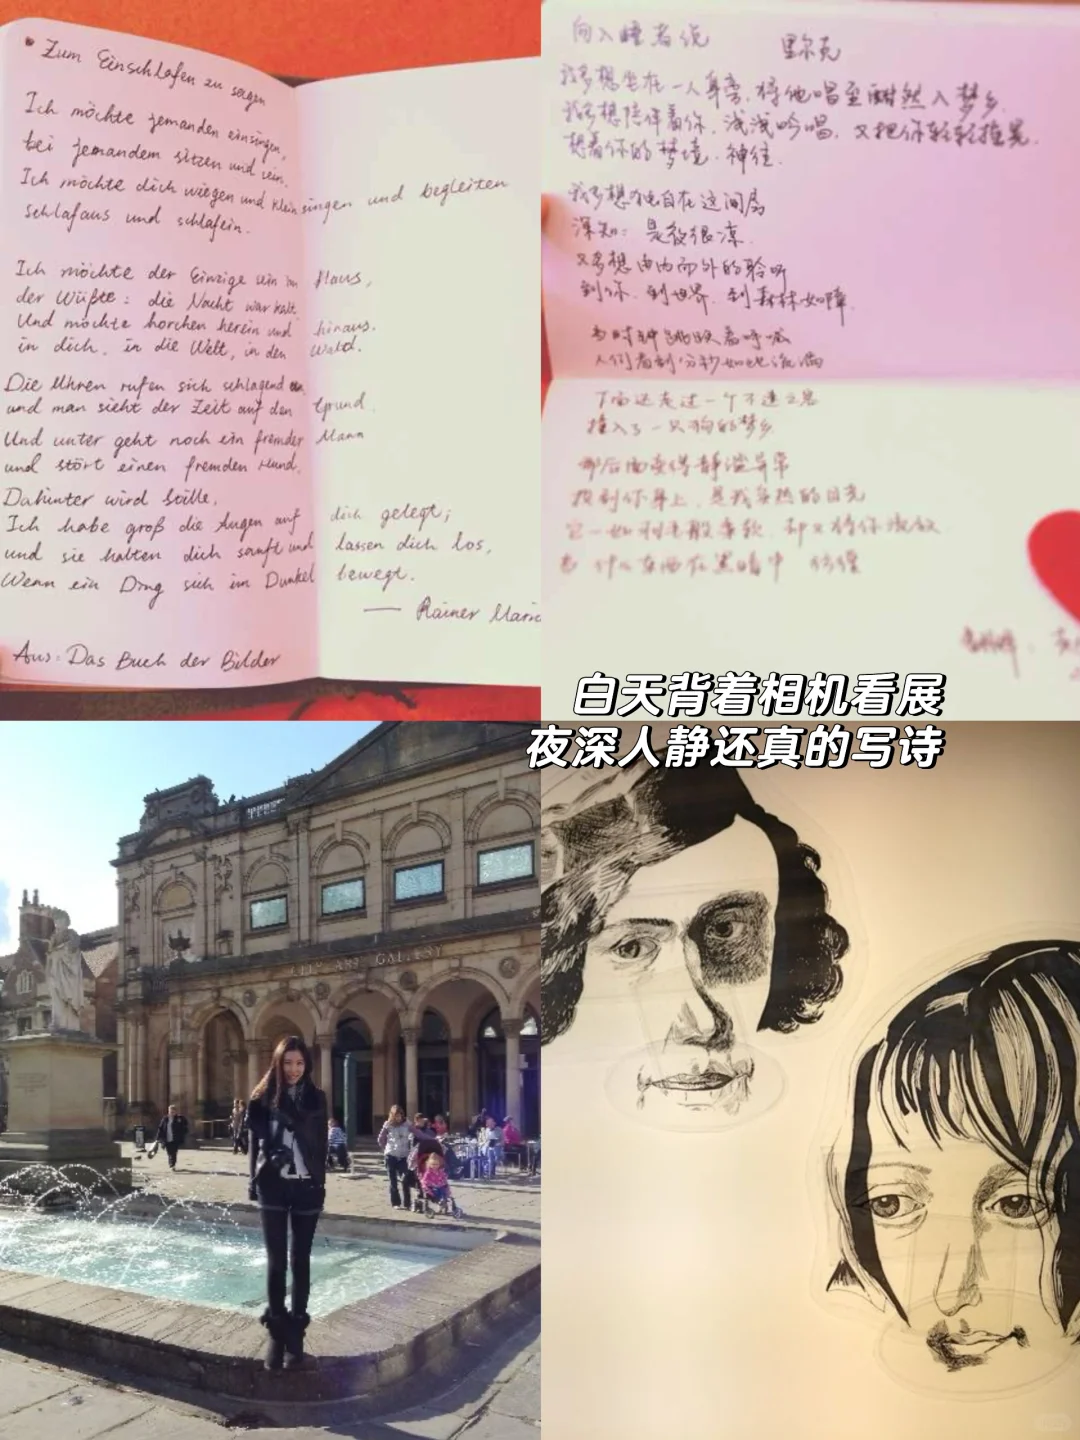 Zum Einschlafen zu sagen
Ich möchte jemanden einsingen,
bei jemandem sitzen und sein.
Ich möchte dich wiegen und kleinsingen und begleiten
schlafaus und schlafein.
Ich möchte der Einzige sein im Haus,
der wüßte: die Nacht war kalt.
Und möchte horchen herein und hinaus.
in dich, in die Welt, in den Wald.
Die Uhren rufen sich schlagend an,
und man sieht der Zeit auf den Grund.
Und unten geht noch ein fremder Mann
und stört einen fremden Hund.
Dahinter wird Stille.
Ich habe groß die Augen auf dich gelegt;
und sie halten dich sanft und lassen dich los,
Wenn ein Ding sich im Dunkel bewegt.
— Rainer Maria
Aus: Das Buch der Bilder
向入睡者说 里尔克
我多想坐在一人身旁,将他唱至酣然入梦乡.
我多想陪伴着你,浅浅吟唱,又把你轻轻摇晃.
想着你的梦境,神往.
我多想独自在这间屋
深知:是夜很凉.
又多想由内而外的聆听
到你,到世界,到森林如障.
人们看到分秒如此流淌
下面还走过一个不速之客
撞入了一只狗的梦乡
那后面变得静谧异常
投到你身上,是我安然的目光
它一如羽毛般柔软,却又将你流放
白天背着相机看展
夜深人静还真的写诗
CITY ART GALLERY